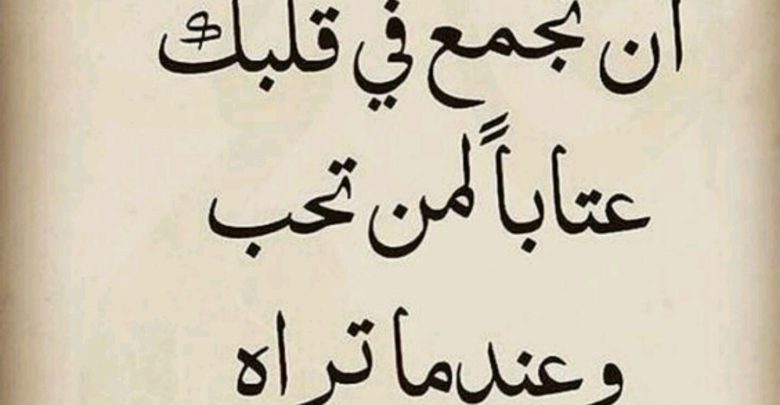 أن تجمع في قلبك
عتاباً لمن تحب
وعندما تراه